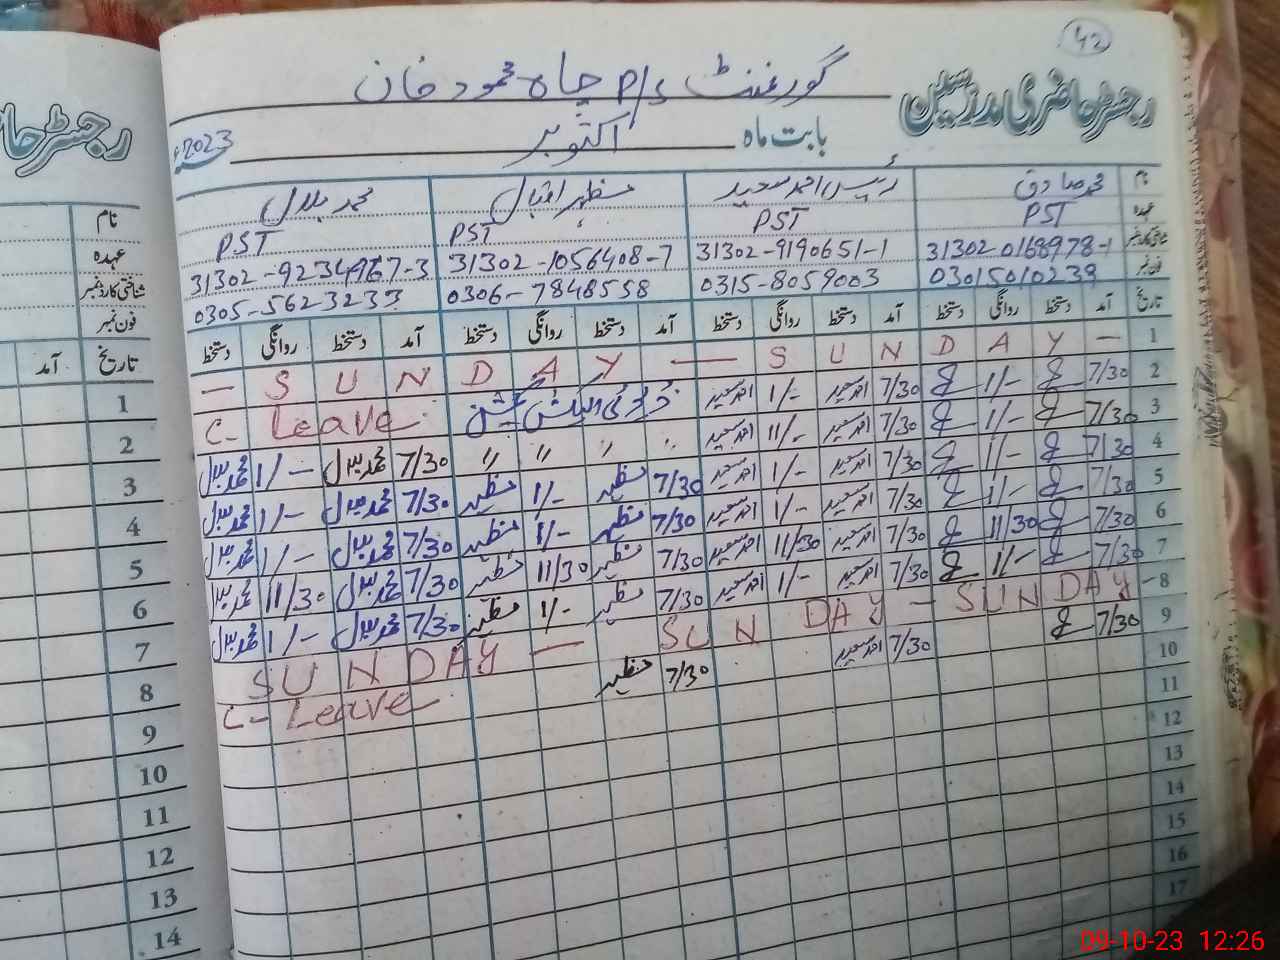 42
رجسٹر حاضری مدرسین
گورنمنٹ P/S چاہ محمود خان
بابت ماہ اکتوبر 2023ء
نام محمد صادق رئیس احمد سعید مظہر اقبال محمد بلال
عہدہ PST PST PST PST
شناختی کارڈ نمبر 31302-0168978-1 31302-9190651-1 31302-1056408-7 31302-9234967-3
فون نمبر 03015010239 0315-8059003 0306-7848558 0305-5623233
تاریخ آمد دستخط روانگی دستخط آمد دستخط روانگی دستخط آمد دستخط روانگی دستخط آمد دستخط روانگی دستخط
1 — S U N D A Y — S U N D A Y —
2 7/30 1/- 7/30 احمد سعید 1/- احمد سعید C- Leave
3 7/30 1/- 7/30 احمد سعید 11/- احمد سعید " " " " 7/30 محمد بلال 1/- محمد بلال
4 7/30 1/- 7/30 احمد سعید 1/- احمد سعید 7/30 مظہر 1/- مظہر 7/30 محمد بلال 1/- محمد بلال
5 7/30 1/- 7/30 احمد سعید 1/- احمد سعید 7/30 مظہر 1/- مظہر 7/30 محمد بلال 1/- محمد بلال
6 7/30 11/30 7/30 احمد سعید 11/30 احمد سعید 7/30 مظہر 11/30 مظہر 7/30 محمد بلال 11/30 محمد بلال
7 7/30 1/- 7/30 احمد سعید 1/- احمد سعید 7/30 مظہر 1/- مظہر 7/30 محمد بلال 1/- محمد بلال
8 SUNDAY — SUN DAY — SUNDAY
9 7/30 7/30 احمد سعید 7/30 مظہر C- Leave
10
11
12
13
14
15
16
17
رجسٹر حا
نام
عہدہ
شناختی کارڈ نمبر
فون نمبر
تاریخ آمد
1
2
3
4
5
6
7
8
9
10
11
12
13
14
09-10-23 12:26